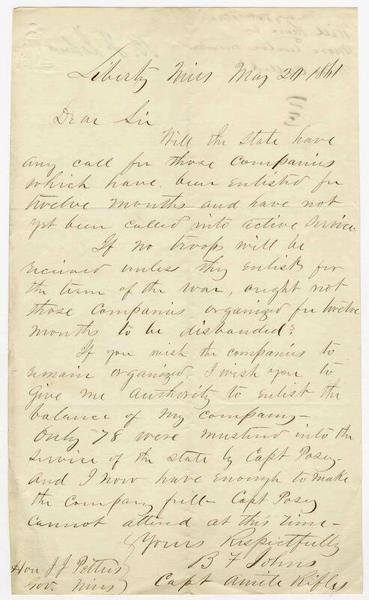 Liberty Miss May 29 1861
Dear Sir
Will the state have
any call for those Companies
which have been enlisted for
twelve months and have not
yet been called into active service
If no troops will be
received unless they enlist for
the term of the war, ought not
those Companies organized for twelve
months to be disbanded?
If you wish the companies to
remain organized I wish you to
Give me authority to enlist the
balance of my company—
Only 78 were mustered into the
service of the state by Capt Posey—
and I now have enough to make
the Company full— Capt Posey
cannot attend at this time—
Yours Respectfully
B F Johns
Capt Amite Rifles
Hon J J Pettus
Gov. Miss